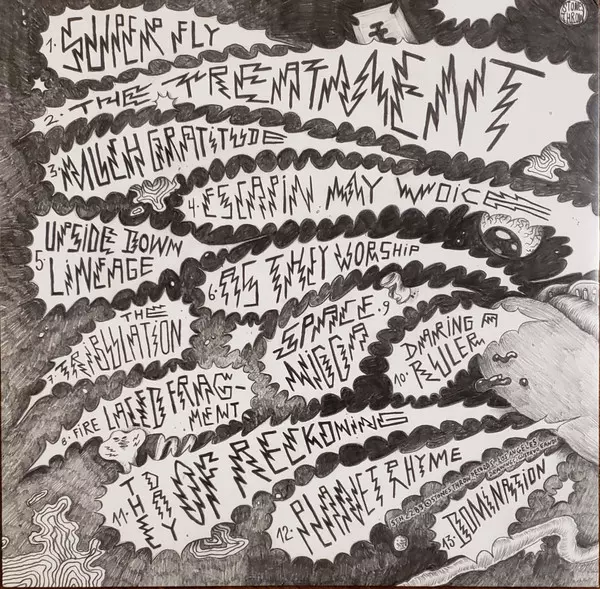 STONES
THROW
1. SUPER FLY
2. THE TREATMENT
3. MUCH GRATITUDE
4. ESCAPIN MY VOICES
UPSIDE DOWN
5. LINEAGE
6. AS THEY WORSHIP
THE
7. TRIBULATION
8. FIRE LACED FRAG-
MENT
SPACE 9.
NIGGA
A
10. RULER
11. THE DAY OF RECKONING
12. PLANET RHYME
STONES THROW LOS ANGELES
13. DOMINATION